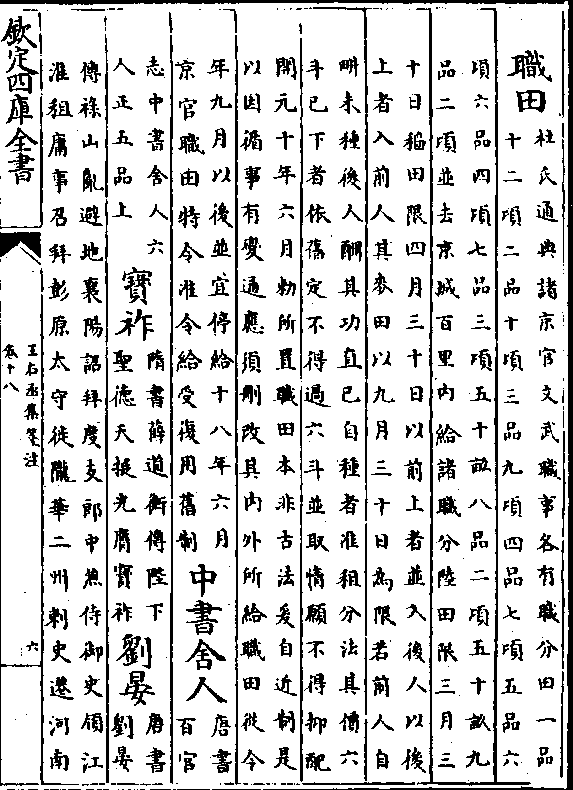 職田
杜氏通典諸京官文武職事各有職分田一品
十二頃二品十頃三品九頃四品七頃五品六
頃六品四頃七品三頃五十畝八品二頃五十畝九
品二頃並去京城百里內給諸職分陸田限三月三
十日稻田限四月三十日以前上者並入後人以後
上者入前人其麥田以九月三十日為限若前人自
畊未種後人酬其功直已自種者准租分法其價六
斗已下者依舊定不得過六斗並取情願不得抑配
開元十年六月勅所置職田本非古法爰自近制是
以因循事有變通應須刪改其內外所給職田從今
年九月以後並宜停給十八年六月
京官職田特令准令給受復用舊制
中書舍人
唐書
百官
志中書舍人六
人正五品上
寶祚
隋書薛道衡傳陛下
聖德天挺光膺寶祚
劉晏
唐書
劉晏
傳祿山亂避地襄陽詔拜度支郎中兼侍御史領江
淮租庸事召拜彭原太守徙隴華二州刺史遷河南
欽定四庫全書
王右丞集箋注
卷十八
六